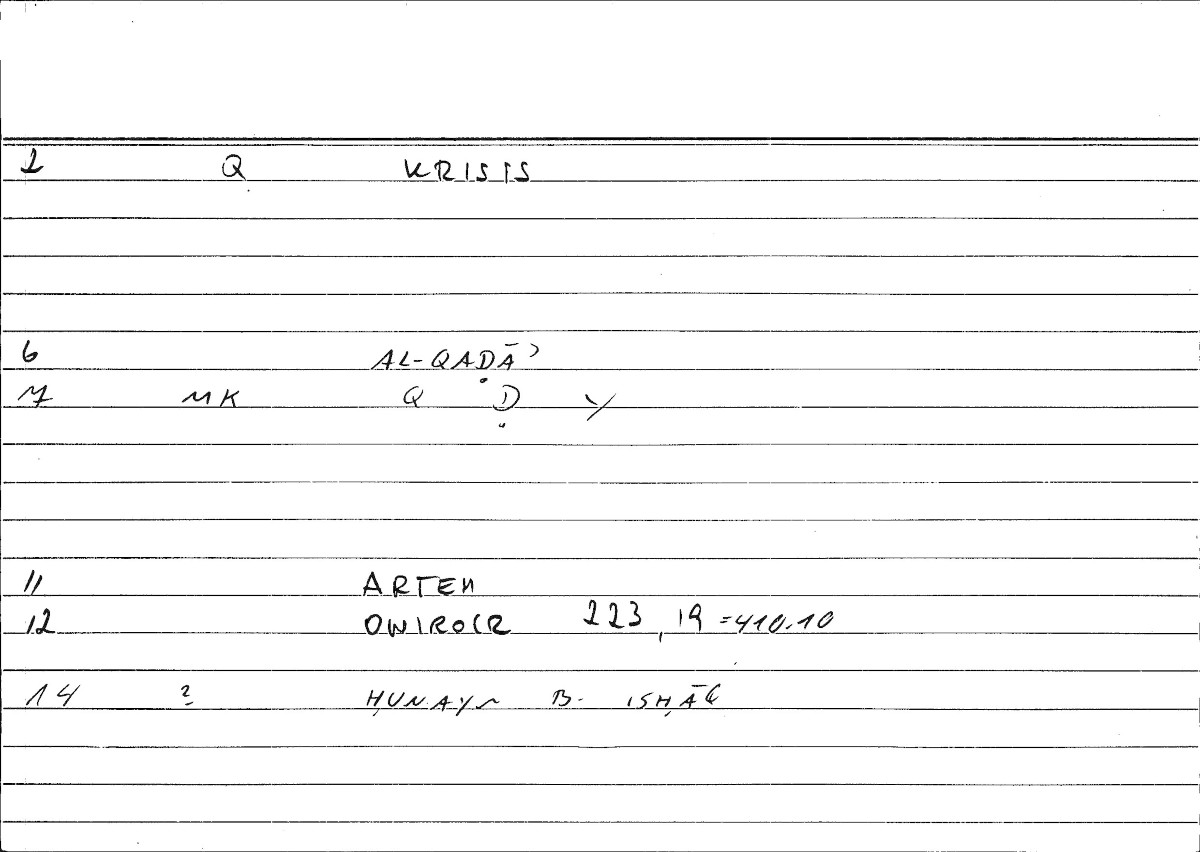 1 Q KRISIS
6 AL-QAḌĀʾ
7 MK Q Ḍ Y
11 ARTEM
12 OWIROCR 223,19=410.10
14 ? ḤUNAYN B. ISḤĀQ